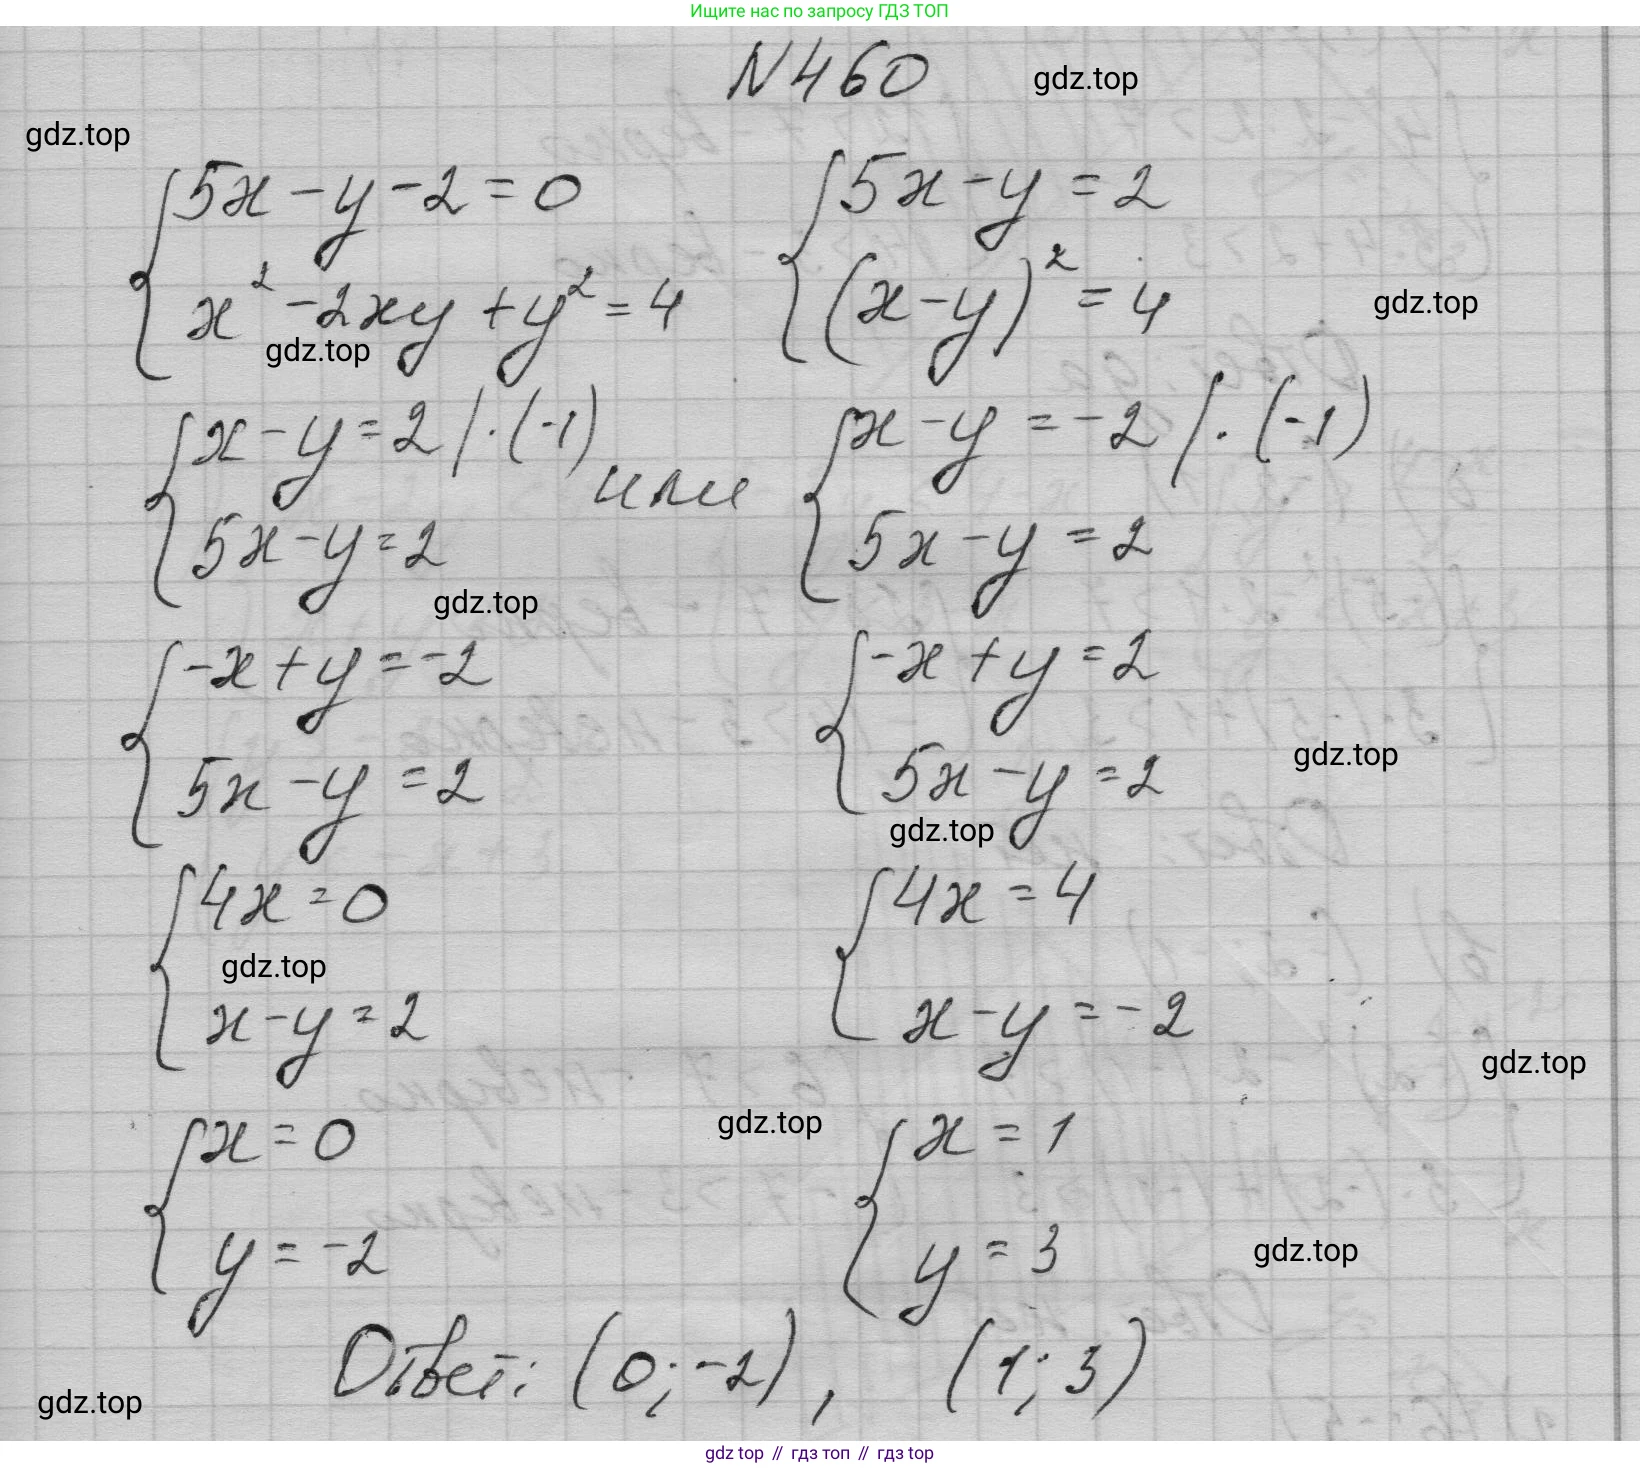 Ищите нас по запросу ГДЗ ТОП
N460 gdz.top
gdz.top
5x - y - 2 = 0 5x - y = 2
x² - 2xy + y² = 4 (x - y)² = 4 gdz.top
gdz.top
x - y = 2 | · (-1) или x - y = -2 | · (-1)
5x - y = 2 5x - y = 2
gdz.top
-x + y = -2 -x + y = 2
gdz.top
5x - y = 2 5x - y = 2
gdz.top
4x = 0 4x = 4
gdz.top
x - y = 2 x - y = -2
gdz.top
gdz.top
x = 0 x = 1
y = -2 y = 3 gdz.top
Ответ: (0; -2), (1; 3)
gdz.top
gdz top // гдз топ // гдз top